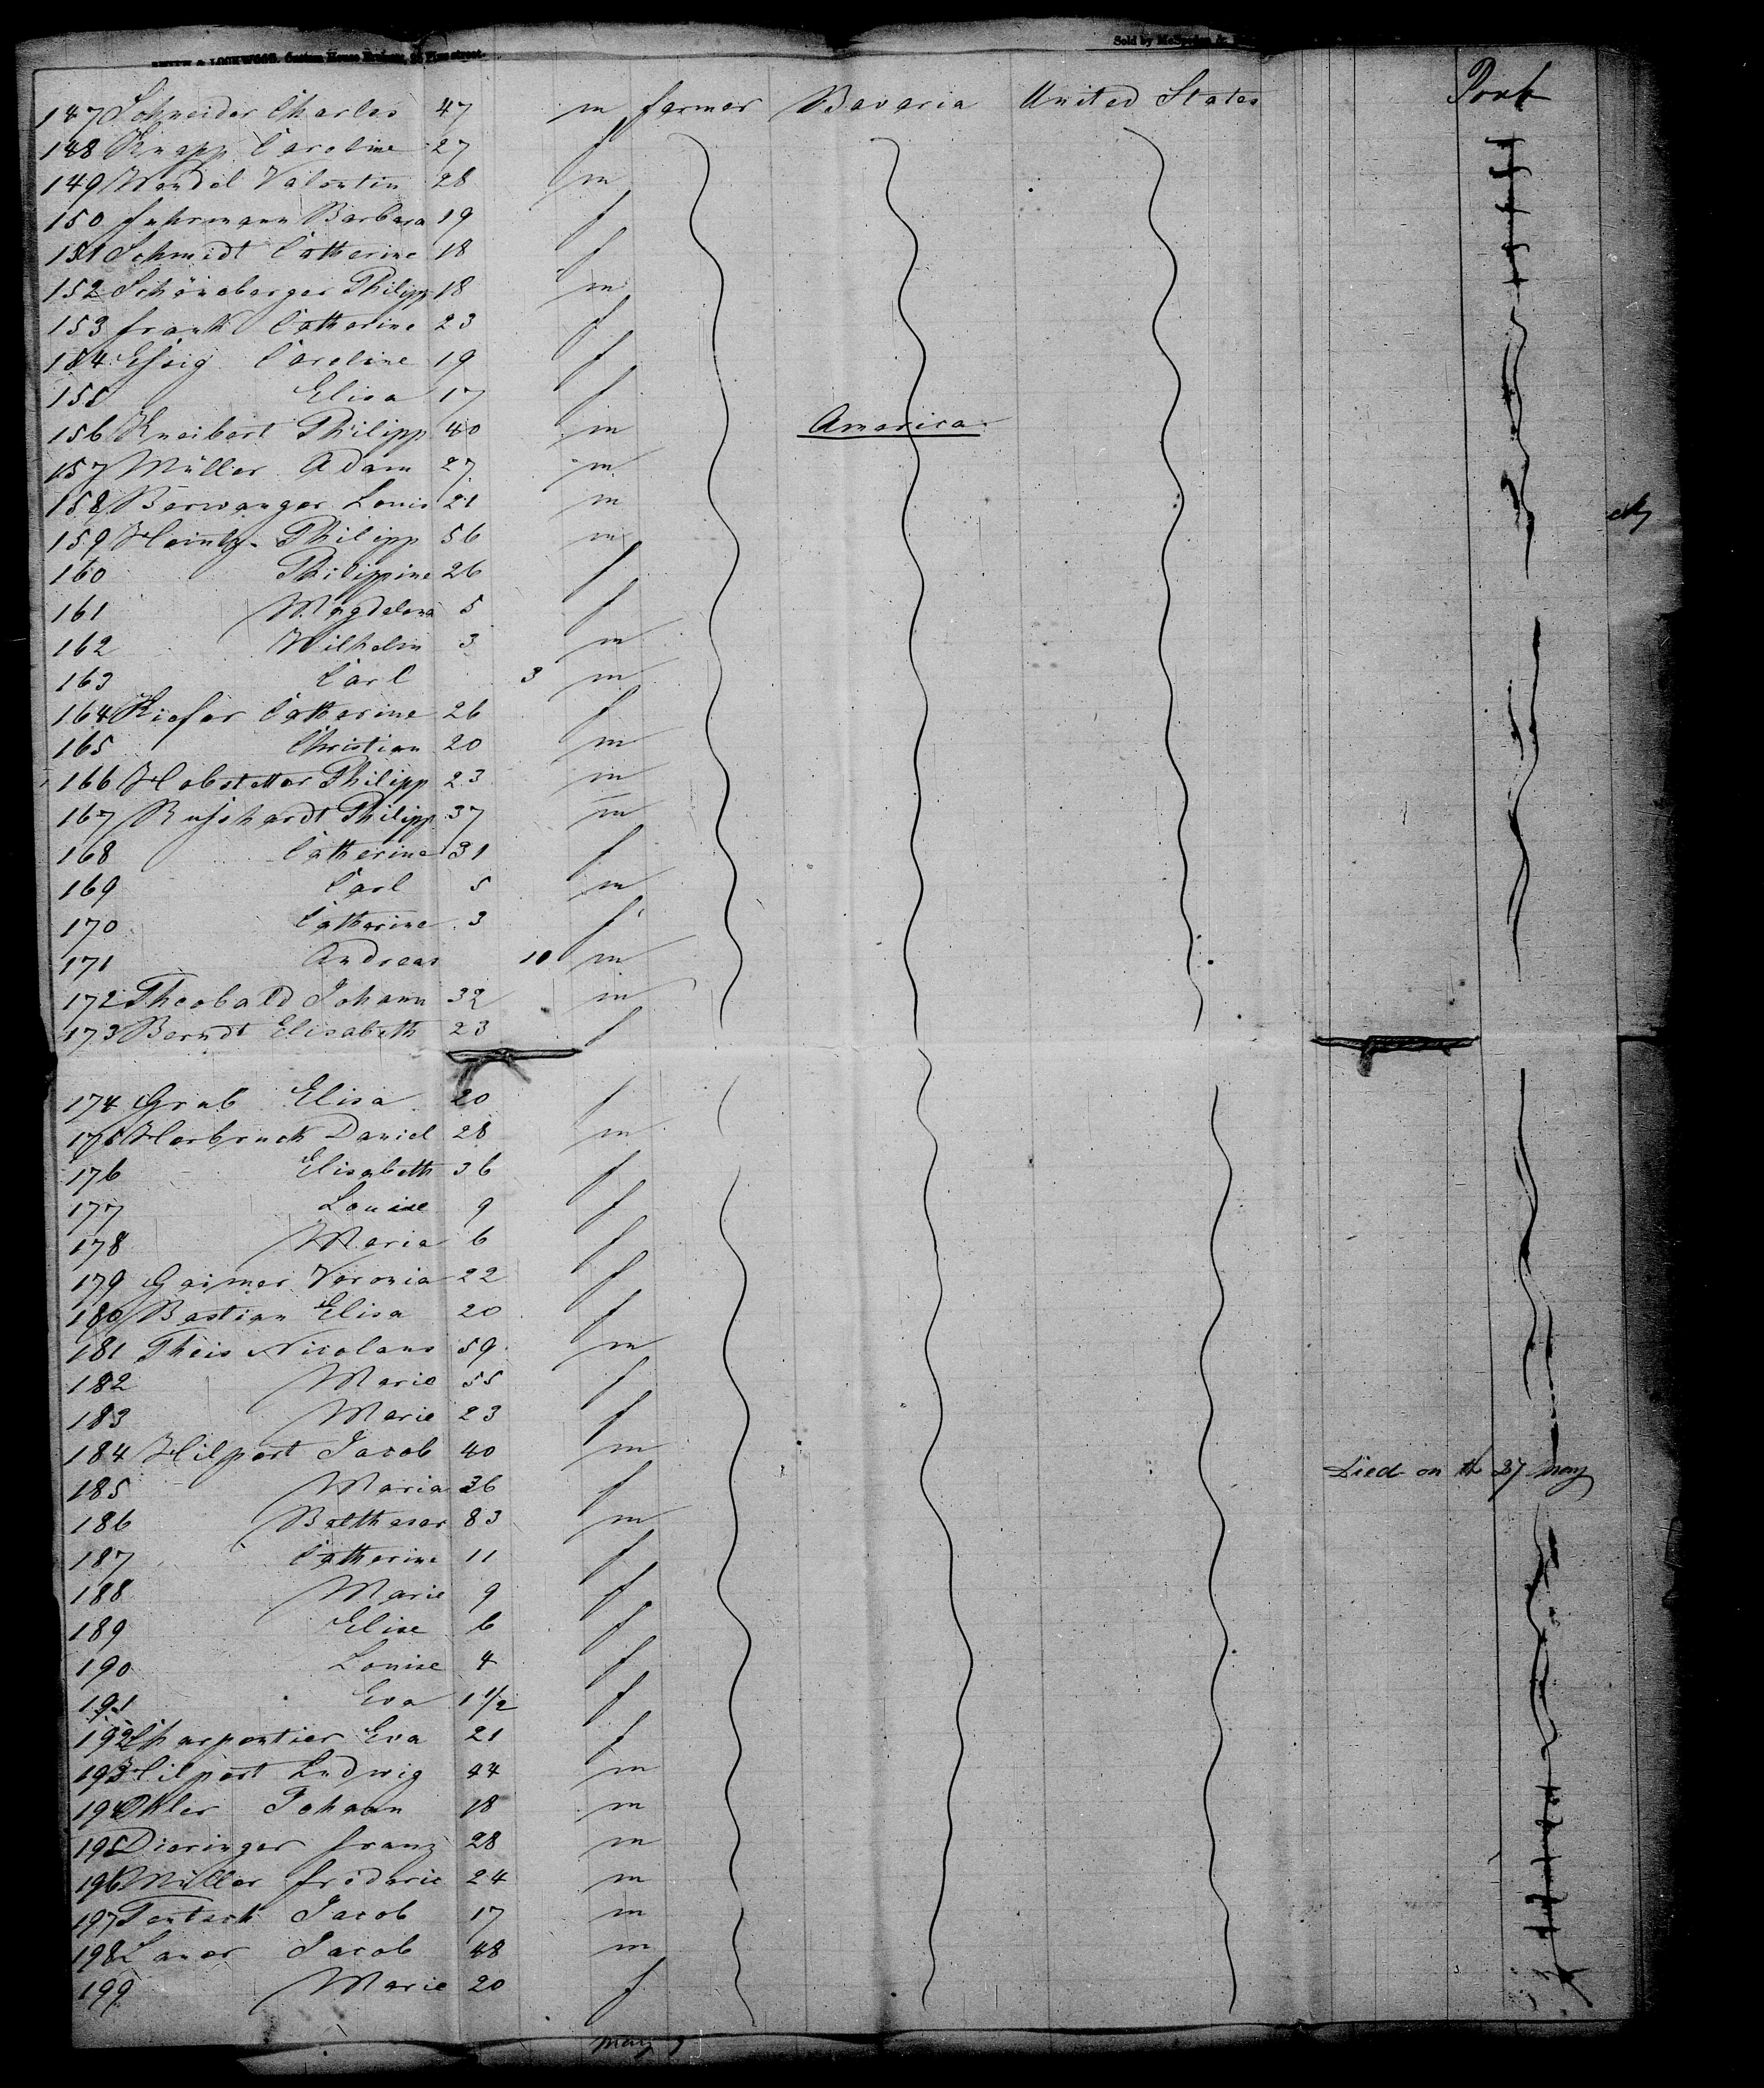 SMITH & LOCKWOOD, Custom House Brokers, Pine street.
Sold by
147 Schneider Charles 47 m farmer Bavaria United States Pork
148 Knapp Caroline 27 f
149 Wendel Valentin 28 m
150 Fuhrmann Barbara 19 f
151 Schmidt Catherine 18 f
152 Schöneberger Philipp 18 m
153 Frank Catherine 23 f
154 Essig Caroline 19 f
155 Elisa 17 f
156 Kneibert Philipp 40 m America
157 Müller Adam 27 m
158 Berwanger Louis 21 m
159 Heintz Philipp 56 m
160 Philippine 26 f
161 Magdalena 5 f
162 Wilhelm 3 m
163 Carl 3 m
164 Kiefer Catherine 26 f
165 Christian 20 m
166 Hobstetter Philipp 23 m
167 Philipp 37 m
168 Catherine 31 f
169 Carl 5 m
170 Catherine 3 f
171 Andreas 10 m
172 Theobald Johann 32 m
173 Berndt Elisabeth 23 f
174 Grub Elisa 20 f
175 Herbruck Daniel 28 m
176 Elisabeth 36 f
177 Louise 9 f
178 Maria 6 f
179 Geimer Veronia 22 f
180 Bastian Elisa 20 f
181 Theis Nicolaus 59 m
182 Marie 55 f
183 Marie 23 f
184 Hilpert Jacob 40 m
185 Maria 36 f Died on th 27 may
186 Balthasar 83 m
187 Catherine 11 f
188 Marie 9 f
189 Elise 6 f
190 Louise 4 f
191 Eva 1 1/2 f
192 Charpentier Eva 21 f
193 Hilpert Ludwig 44 m
194 Ohler Johann 18 m
195 Dieringer Franz 28 m
196 Müller Fréderic 24 m
197 Jacob 17 m
198 Lauer Jacob 48 m
199 Marie 20 f
may